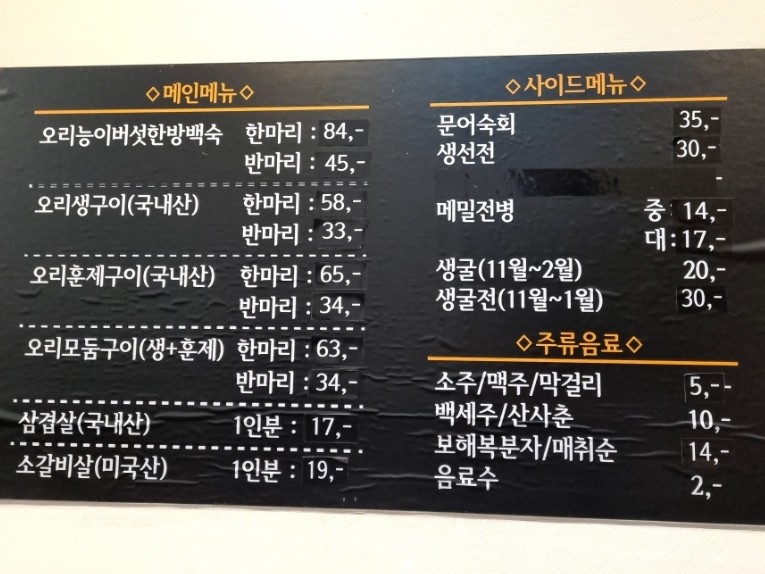 ◇메인메뉴◇
오리능이버섯한방백숙 한마리 : 84,-
반마리 : 45,-
오리생구이(국내산) 한마리 : 58,-
반마리 : 33,-
오리훈제구이(국내산) 한마리 : 65,-
반마리 : 34,-
오리모둠구이(생+훈제) 한마리 : 63,-
반마리 : 34,-
삼겹살(국내산) 1인분 : 17,-
소갈비살(미국산) 1인분 : 19,-
◇사이드메뉴◇
문어숙회 35,-
생선전 30,-
-
메밀전병 중 : 14,-
대 : 17,-
생굴(11월~2월) 20,-
생굴전(11월~1월) 30,-
◇주류음료◇
소주/맥주/막걸리 5,--
백세주/산사춘 10,-
보해복분자/매취순 14,-
음료수 2,-